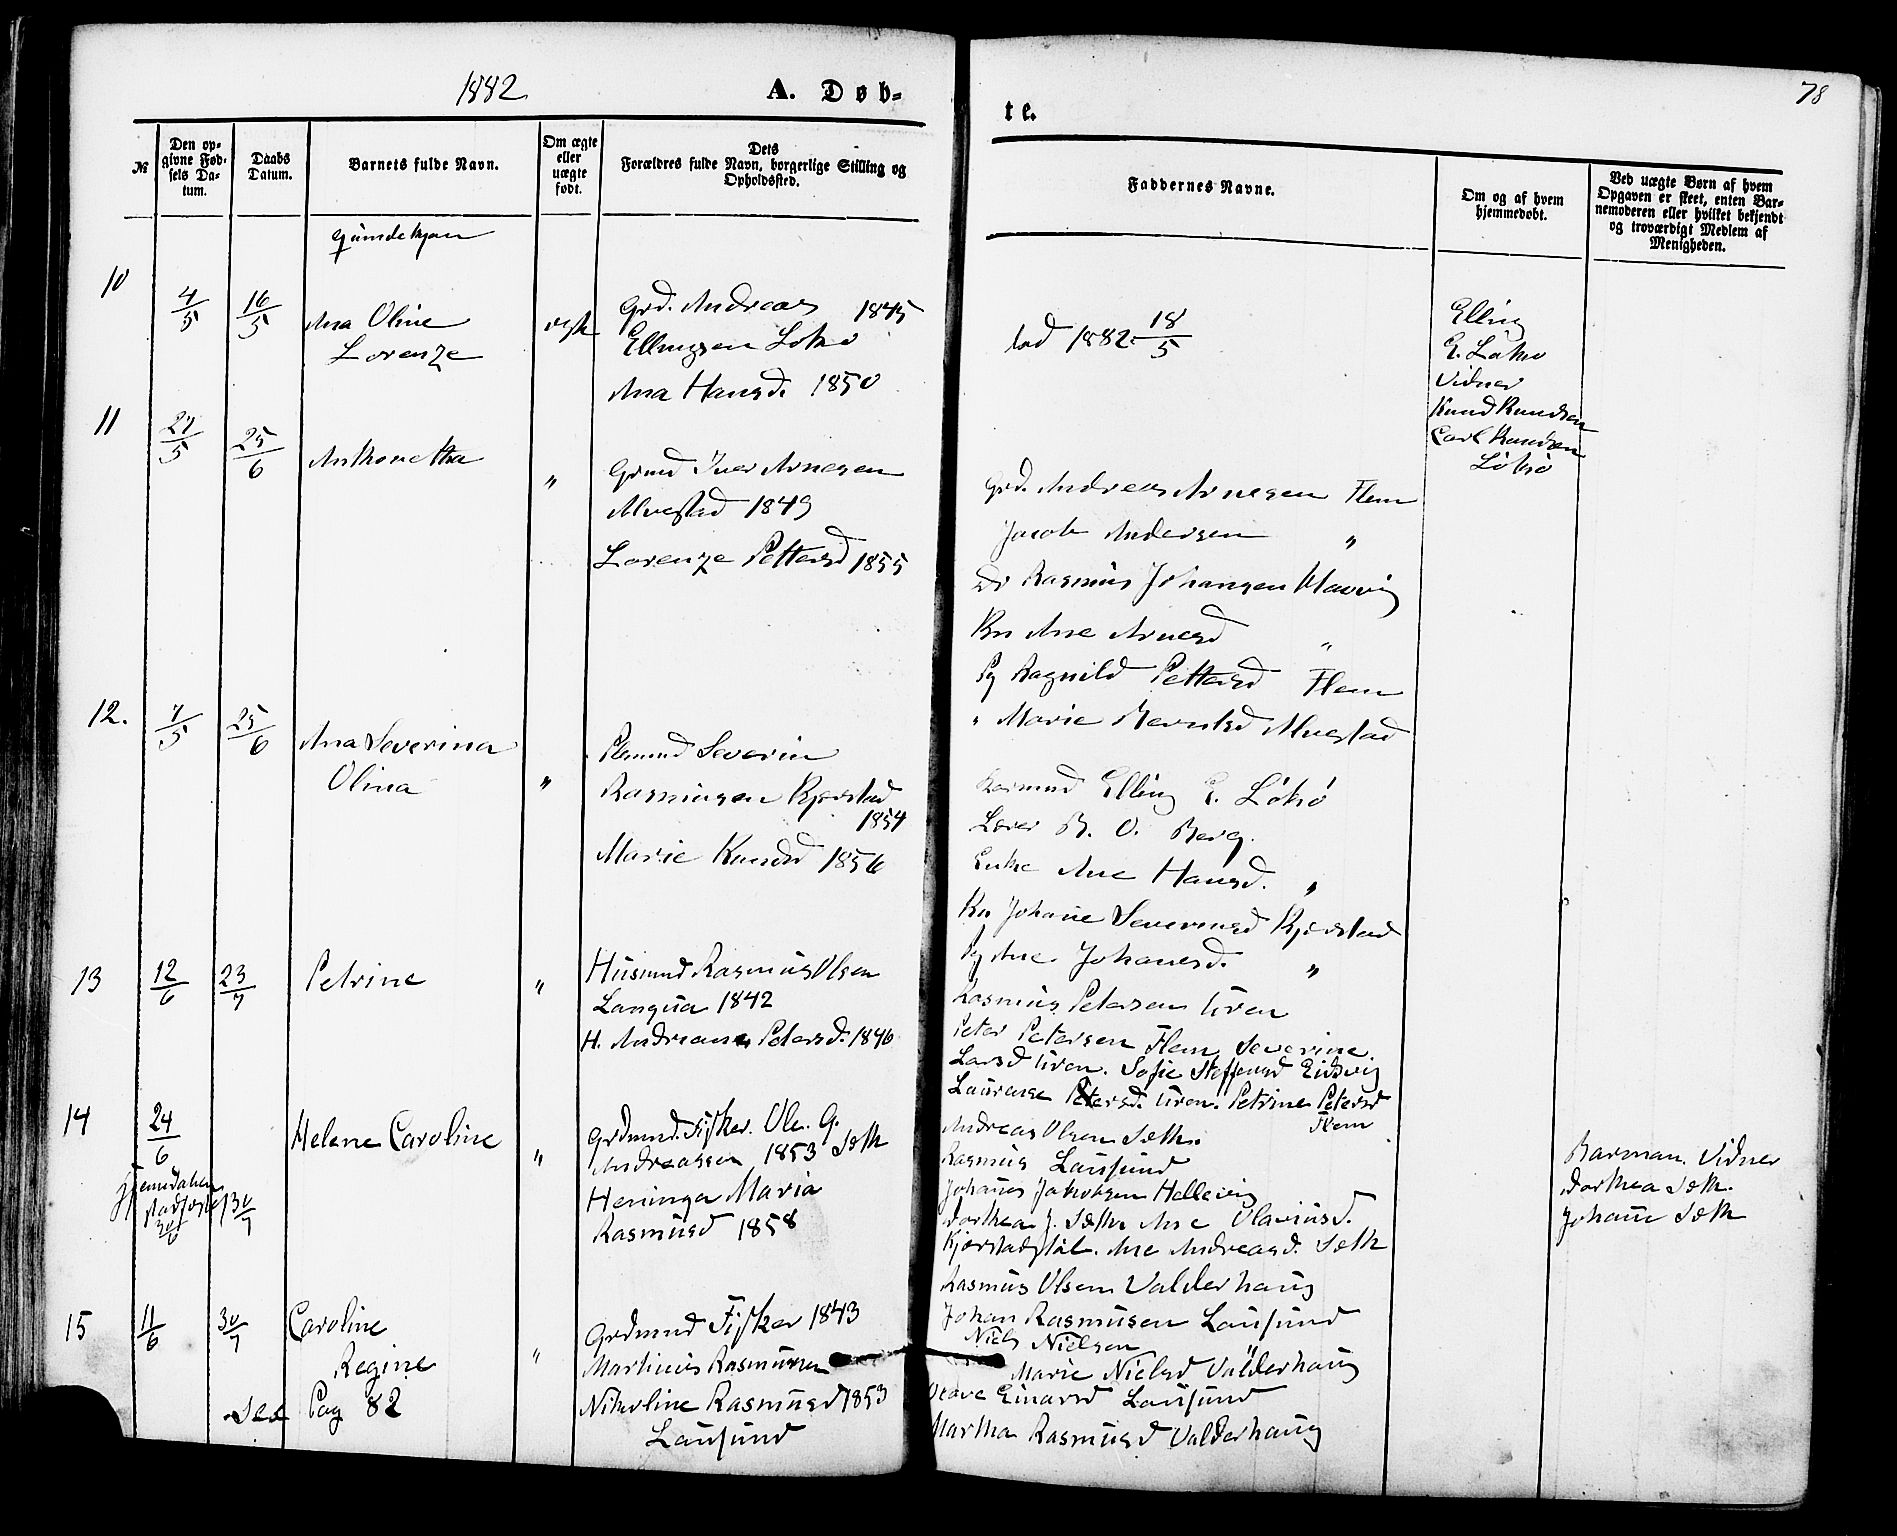 1882
A. Døb=
te.
78
№
Den op=
givne Fød=
sels Da=
tum.
Daabs
Datum.
Barnets fulde Navn.
Om ægte
eller
uægte
født.
Dets
Forældres fulde Navn, borgerlige Stilling og
Opholdssted.
Faddernes Navne.
Om og af hvem
hjemmedøbt.
Ved uægte Børn af hvem
Opgaven er skeet, enten Bar=
nemoderen eller hvilket bekjendt
og troværdigt Medlem af
Menigheden.
Qvindekjøn
10
4/5
16/5
Ana Oline
Lorenze
ægte
Grd. Andreas 1845
Ellingsen Løksø
Ana Hansd. 1850
død 1882. 18/5
Elling
E. Løksø
Vidner
Knud Knudsen
Carl Knudsen
Løksø
11
27/5
25/6
Anthonetha
"
Grmd Iver Arnesen
Alvestad 1849
Lorenze Pettersd 1855
Grd. Andreas Arnesen Flem
Jacob Andersen "
Rasmus Johansen Ulavvig
Kn Ane Arnesd "
Pg Ragnild Pettersd Flem
" Marie Berntsd Alvestad
12.
7/5
25/6
Ana Severina
Olina
"
Severin
Rasmusen Kjerstad
1854
Marie Knudsd 1856
Elling E. Løksø
Lærer B. O. Berg.
Enke Ane Hansd. "
Kn Johane Severinsd Kjerstad
Pg Ane Johanesd. "
13
12/6
23/7
Petrine
"
Husmnd Rasmus Olsen
Langva 1842
H. Andreane Petersd. 1846
Rasmus Petersen Uren
Peter Petersen Flem Severine
Larsd Uren. Sofie Steffensd Eidsvig
Laurense Petersd. Uren. Petrine Petersd
Flem
14
24/6
Hjemdøben
stadfestet
30/6
30/7
Helene Caroline
"
Grdmnd. Fisker. Ole. G.
Andreassen 1853 Sæth
Heninga Maria
Rasmusd 1858
Andreas Olsen Sæth.
Rasmus Lausund
Johanes Jakobsen Hellevig
Dorthea J. Sæth Ane Olaviusd.
Kjerstadstøl. Ane Andreasd. Sæth
Barman. Vidner
Dorthea Sæth.
Johane Sæth
15
11/6
30/7
Caroline
Regine
"
See Pag 82
Grdmnd Fisker 1843
Martinus Rasmusen
Nikoline Rasmusd 1853
Lausund
Rasmus Olsen Valderhaug
Johan Rasmusen Lausund
Niels Nielsen "
Marie Nielsd Valderhaug
Olave Einarsd Lausund
Martha Rasmusd Valderhaug